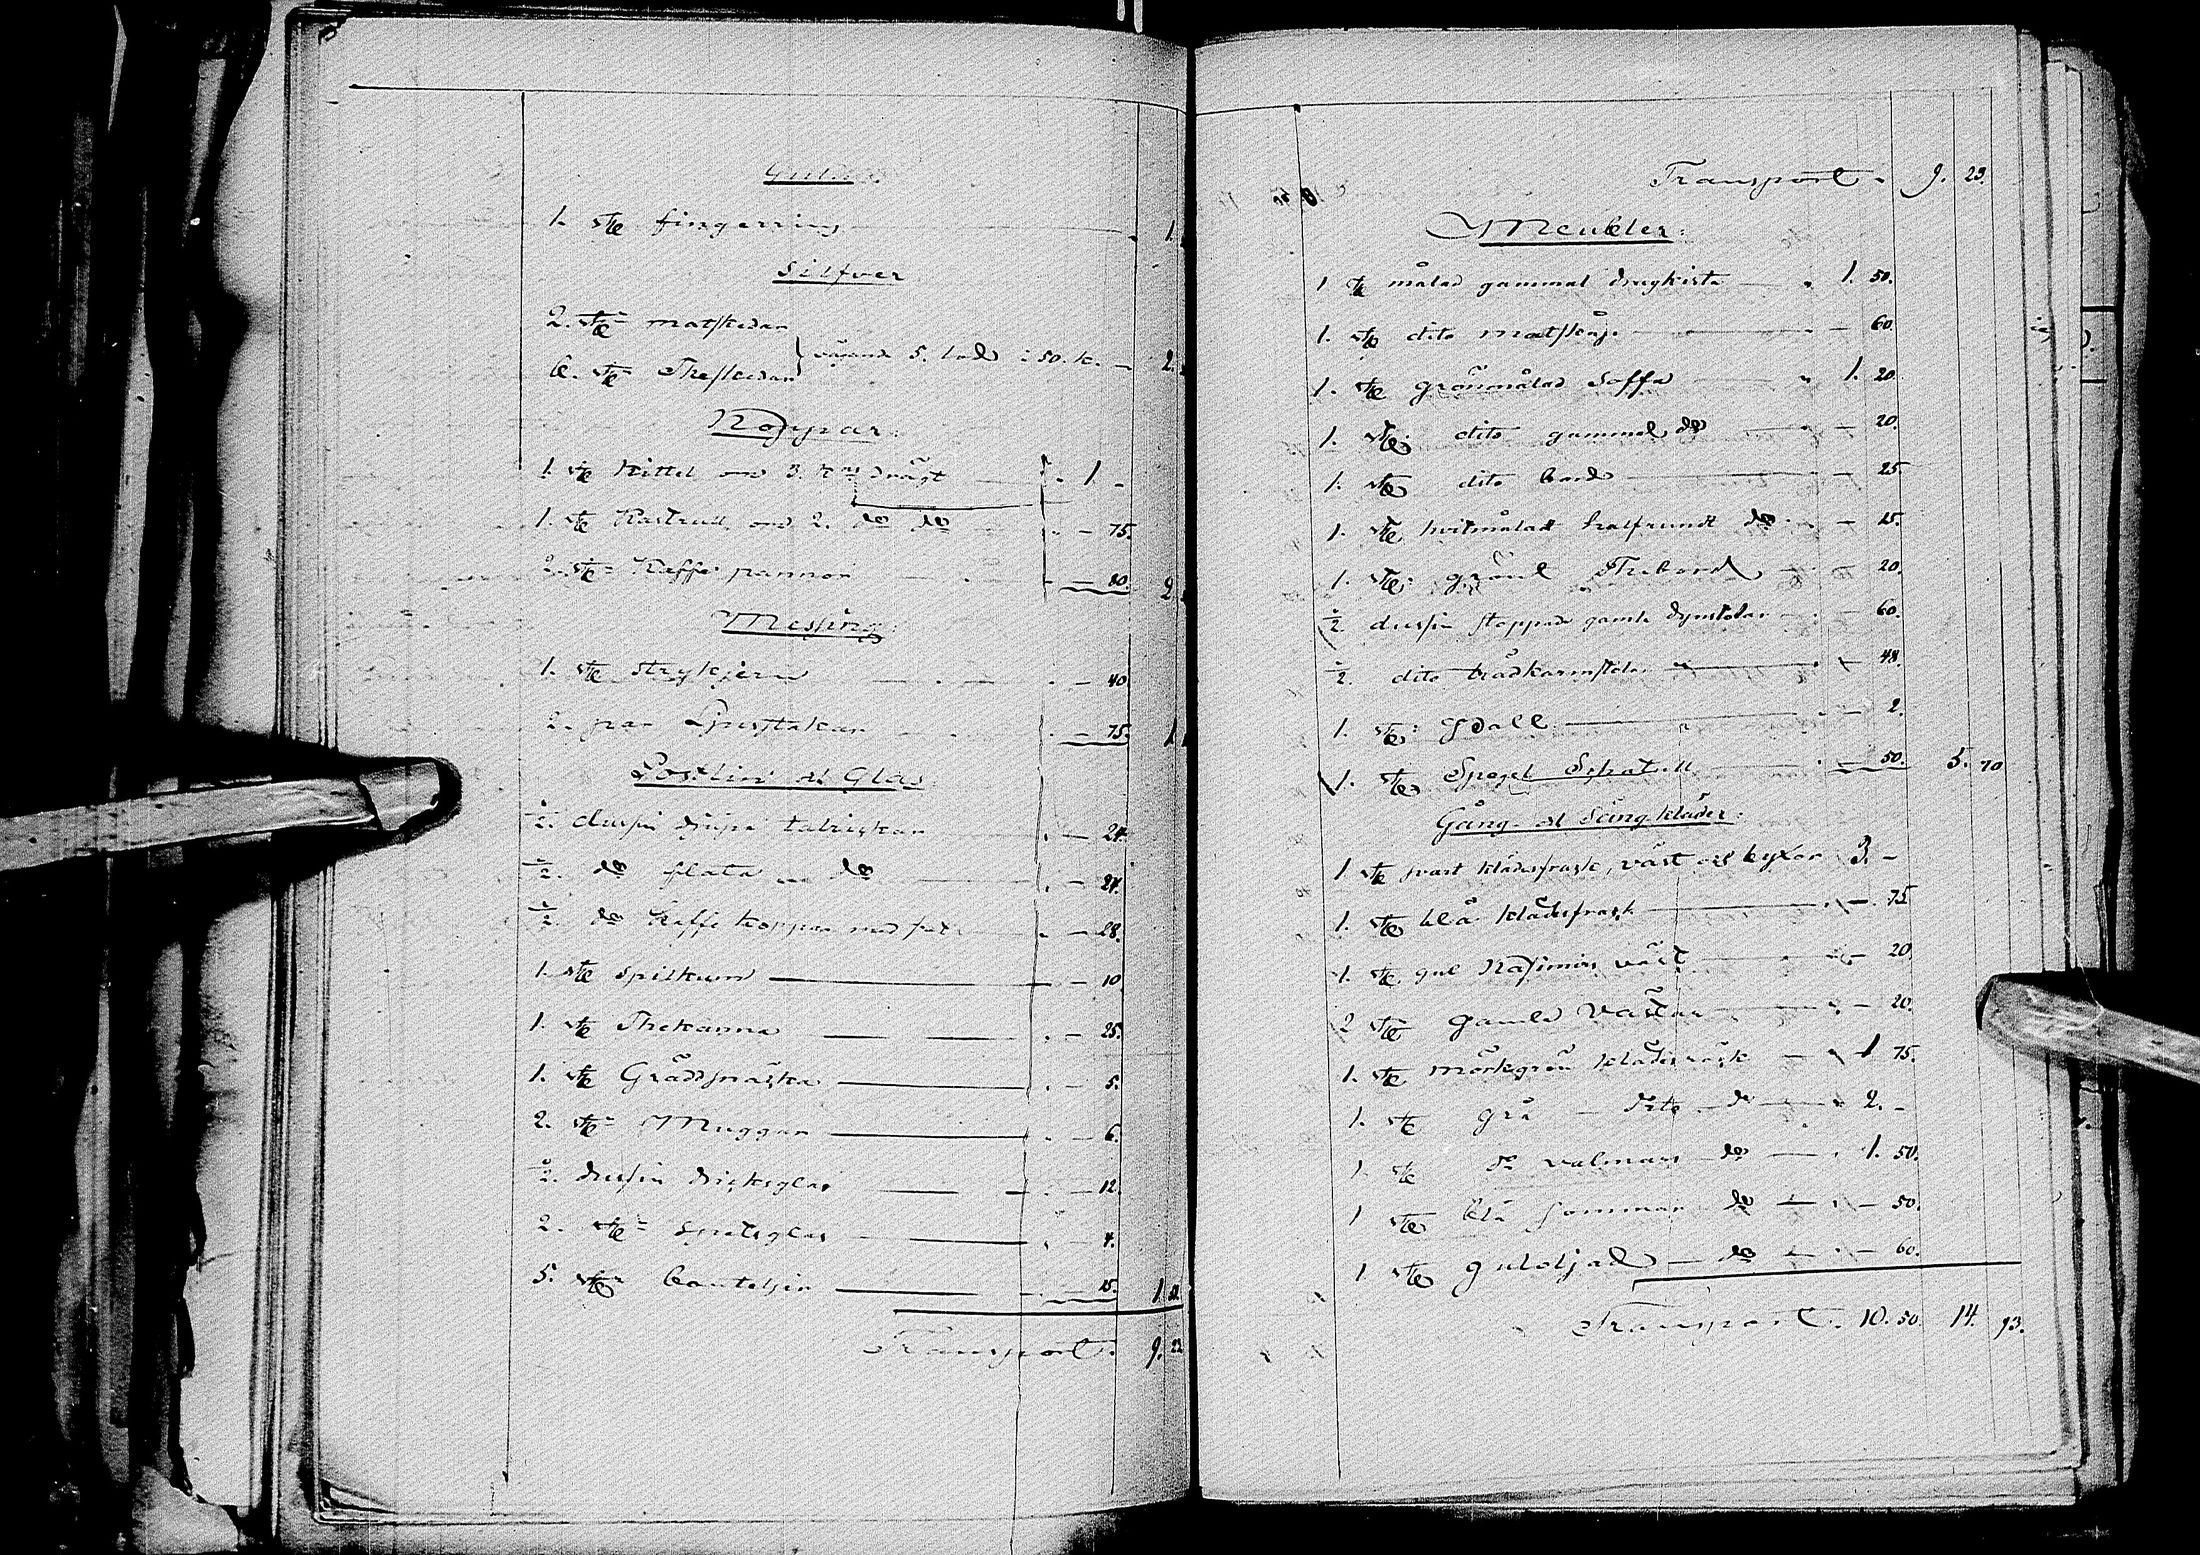 Guld:
1. st fingerring — 1.
Silfver
2. st. matskedar
6. st. Theskedar } vägande 5. lod à 50. k. — 2.
Koppar:
1. st Kittel om 3. drägt — 1 -
1. st Kastrull om 2. do do — 75.
2. st. Kaffe pannor — 80. 2.
Messing:
1. st strykjern — 40.
2. par Ljusstakar — 75. 1.
Postlin och Glas:
1/2 dussin djupa talriskar — 24.
1/2. do flata do — 24.
1/2. do Kaffe koppar med fat — 28.
1. st Spilkum — 10.
1. st Thekanna — 25.
1. st Gräddsnäska — 5.
2. st. Muggar — 6.
1/2. dussin dricksglas — 12.
2. st. Spetsglas — 4.
5. st. bouteljer — 15. 1.
Transport. 9. 23
Transport. 9. 23.
Meubler:
1 st målad gammal dragkista — 1. 50.
1. st dito matskåp — 60.
1. st grönmålad Soffa — 1. 20.
1. st. dito gammal do — 20.
1. st dito bord — 25
1. st hvitmålad halfrundt do — 15.
1. st. grönt Thebord — 20.
1/2 dussin stoppade gamla dynstolar — 60.
1/2. dito trädkarmstolar — 48.
1. st. Pall — 2.
1. st Spegel Schatull — 50. 5. 70
Gång- och Sängkläder:
1 st svart klädesfrack, väst och byxor 3. -
1. st blå klädesfrack — 75
1. st gul Kasimirs väst — 20
2 st gamla västar — 20.
1. st mörkgrön klädesråck — 1 75.
1. st grå — dito do — 2. -
1 st do valmars do — 1. 50.
1 st blå sommar do — 50.
1 st guloljad — do — 60.
Transport. 10. 50. 14. 93.